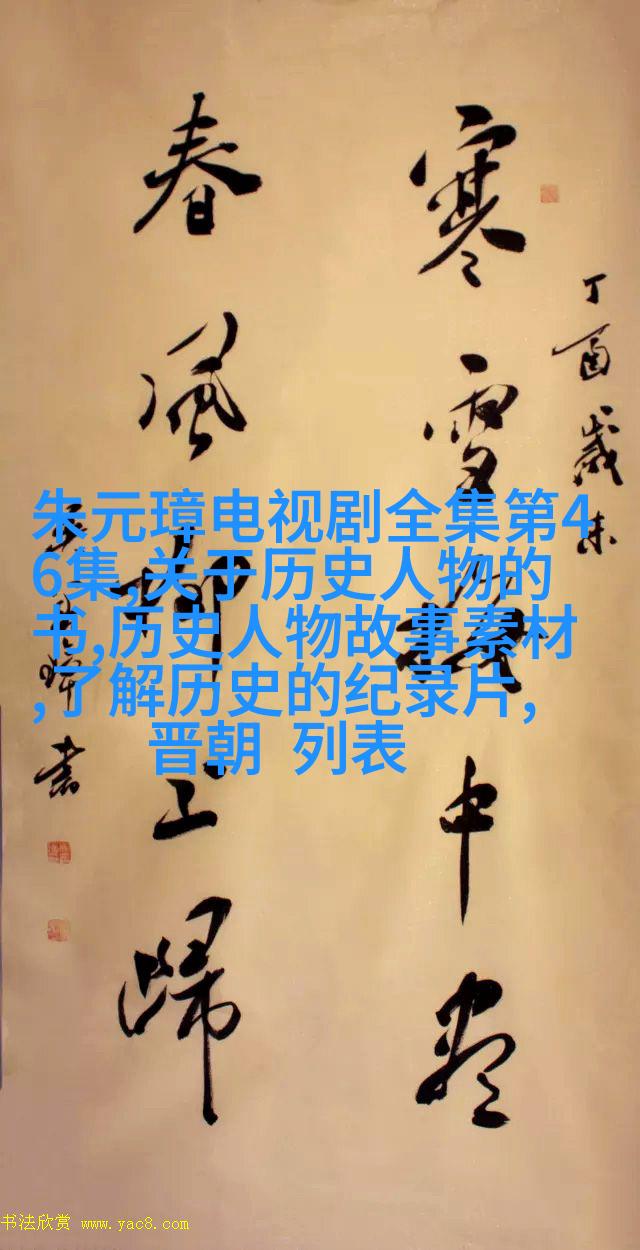 丁酉歲末
寒雪梅中尽
春風柳上歸
書
朱元璋电视剧全集第4
6集,关于历史人物的
书,历史人物故事素材
,了解历史的纪录片,
晋朝 列表
书法欣赏 www.yac8.com